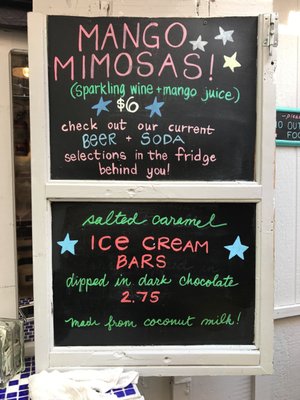 MANGO
MIMOSAS!
(Sparkling wine + mango juice)
$6
check out our current
BEER + SODA
selections in the fridge
behind you!
salted caramel
ICE CREAM
BARS
dipped in dark chocolate
2.75
made from coconut milk!